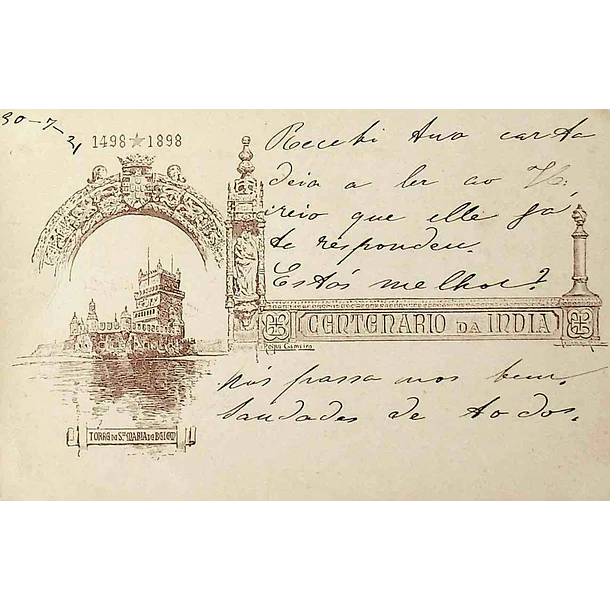 30-7-21
1498 ★ 1898
Recebi tua carta
deia a ler ao Vi-
reio que elle já
te respondeu.
Estás melhor?
CENTENARIO DA INDIA
Roque Gameiro
nós passamos bem.
Saudades de todos.
TORRE DE Sta MARIA DE BELEM